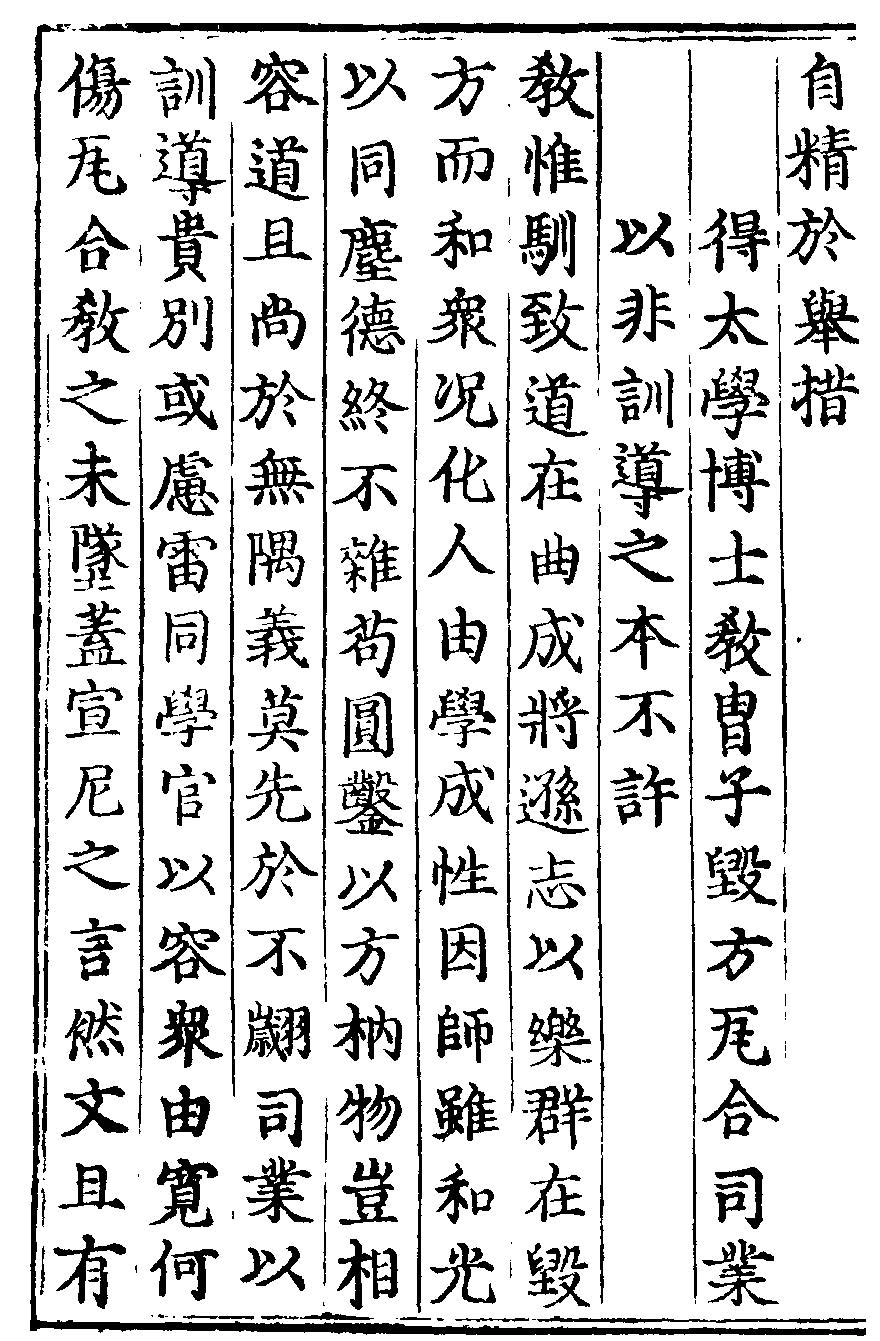 自精於舉措
得太學博士教冑子毀方瓦合司業
以非訓導之本不許
教惟馴致道在曲成將遜志以樂群在毀
方而和衆況化人由學成性因師雖和光
以同塵德終不雜苟圓鑿以方枘物豈相
容道且尚於無隅義莫先於不翽司業以
訓導貴別或慮雷同學官以容衆由寬何
傷瓦合教之未墜蓋宣尼之言然文且有